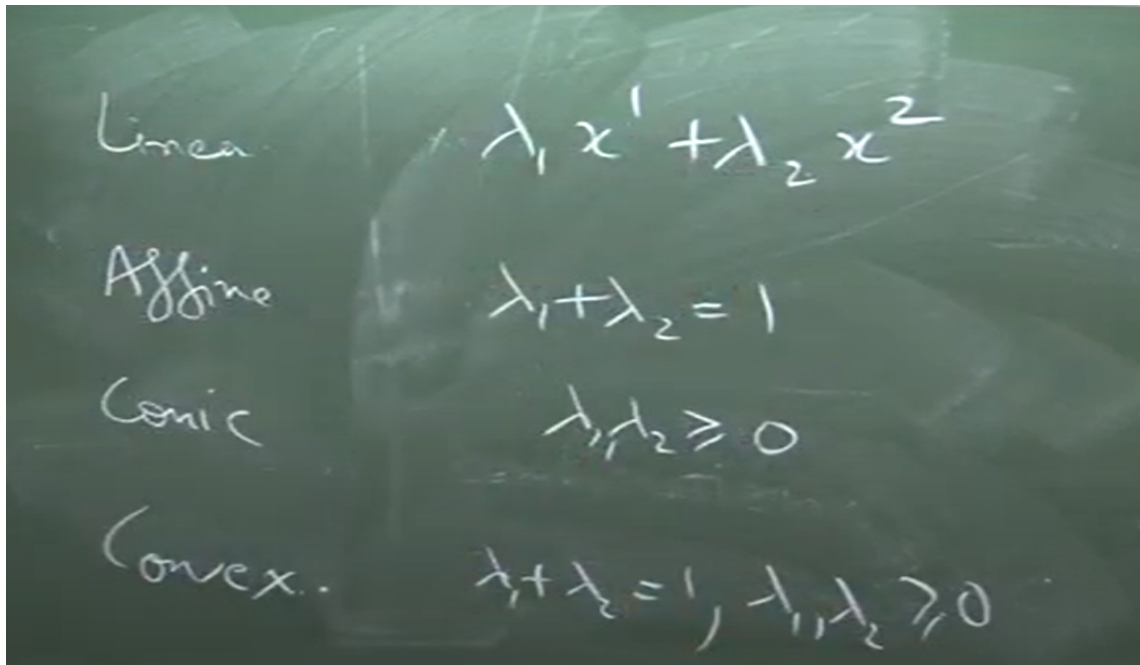 Linear λ₁ x¹ + λ₂ x²
Affine λ₁ + λ₂ = 1
Conic λ₁, λ₂ ≥ 0
Convex. λ₁ + λ₂ = 1, λ₁, λ₂ ≥ 0